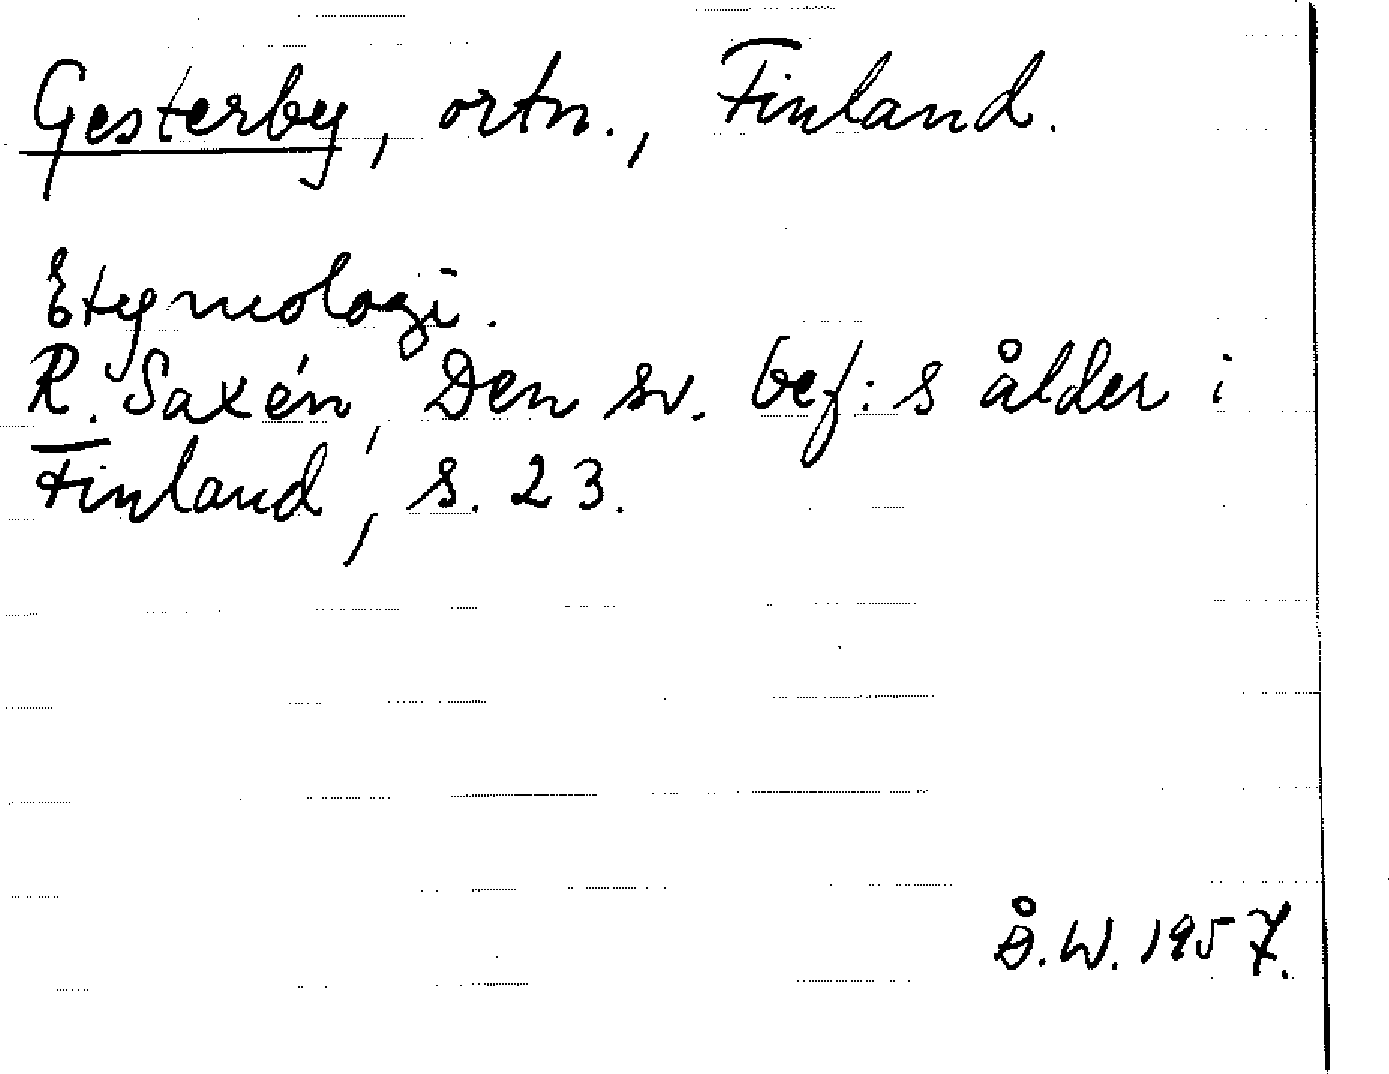 Gesterby, ortn., Finland.
Etymologi.
R. Saxén, Den sv. bef:s ålder i
Finland, s. 23.
Å.W. 1957.